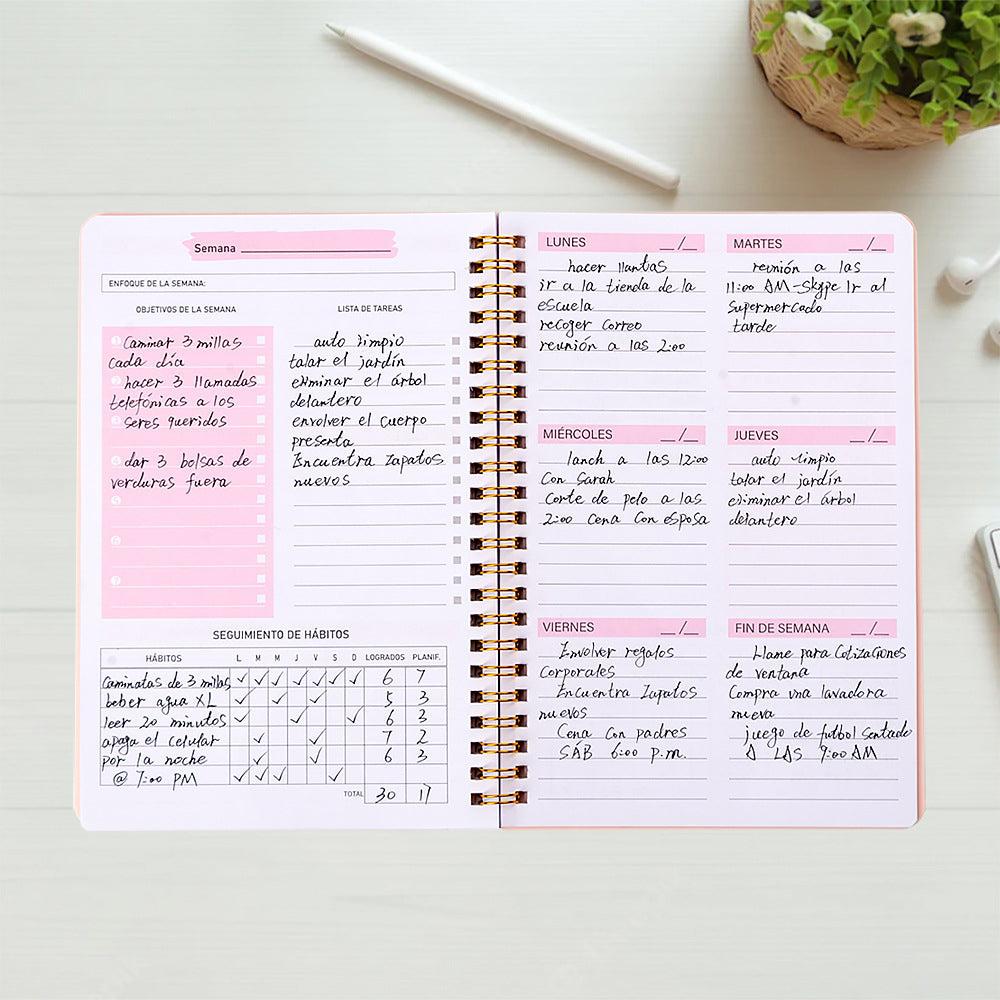 Semana
ENFOQUE DE LA SEMANA:
OBJETIVOS DE LA SEMANA
1 Caminar 3 millas
cada día
2 hacer 3 llamadas
telefónicas a los
3 seres queridos
4 dar 3 bolsas de
verduras fuera
5
6
7
LISTA DE TAREAS
auto limpio
talar el jardín
eliminar el árbol
delantero
envolver el cuerpo
presenta
Encuentra zapatos
nuevos
SEGUIMIENTO DE HÁBITOS
HÁBITOS L M M J V S D LOGRADOS PLANIF.
caminatas de 3 millas ✓ ✓ ✓ ✓ ✓ ✓ ✓ 6 7
beber agua XL ✓ ✓ ✓ 5 3
leer 20 minutos ✓ ✓ ✓ 6 3
apaga el celular ✓ ✓ 7 2
por la noche ✓ ✓ 6 3
@ 7:00 PM ✓ ✓ ✓ ✓
TOTAL 30 17
LUNES __/__
hacer llantas
ir a la tienda de la
escuela
recoger correo
reunión a las 2:00
MARTES __/__
reunión a las
11:00 AM-Skype Ir al
supermercado
tarde
MIÉRCOLES __/__
lanch a las 12:00
Con Sarah
Corte de pelo a las
2:00 Cena Con esposa
JUEVES __/__
auto limpio
talar el jardín
eliminar el árbol
delantero
VIERNES __/__
Envolver regalos
Corporales
Encuentra Zapatos
nuevos
Cena con padres
SÁB 6:00 p.m.
FIN DE SEMANA __/__
Llame para Cotizaciones
de ventana
Compra una lavadora
nueva
juego de futbol Sentado
A LAS 9:00 AM